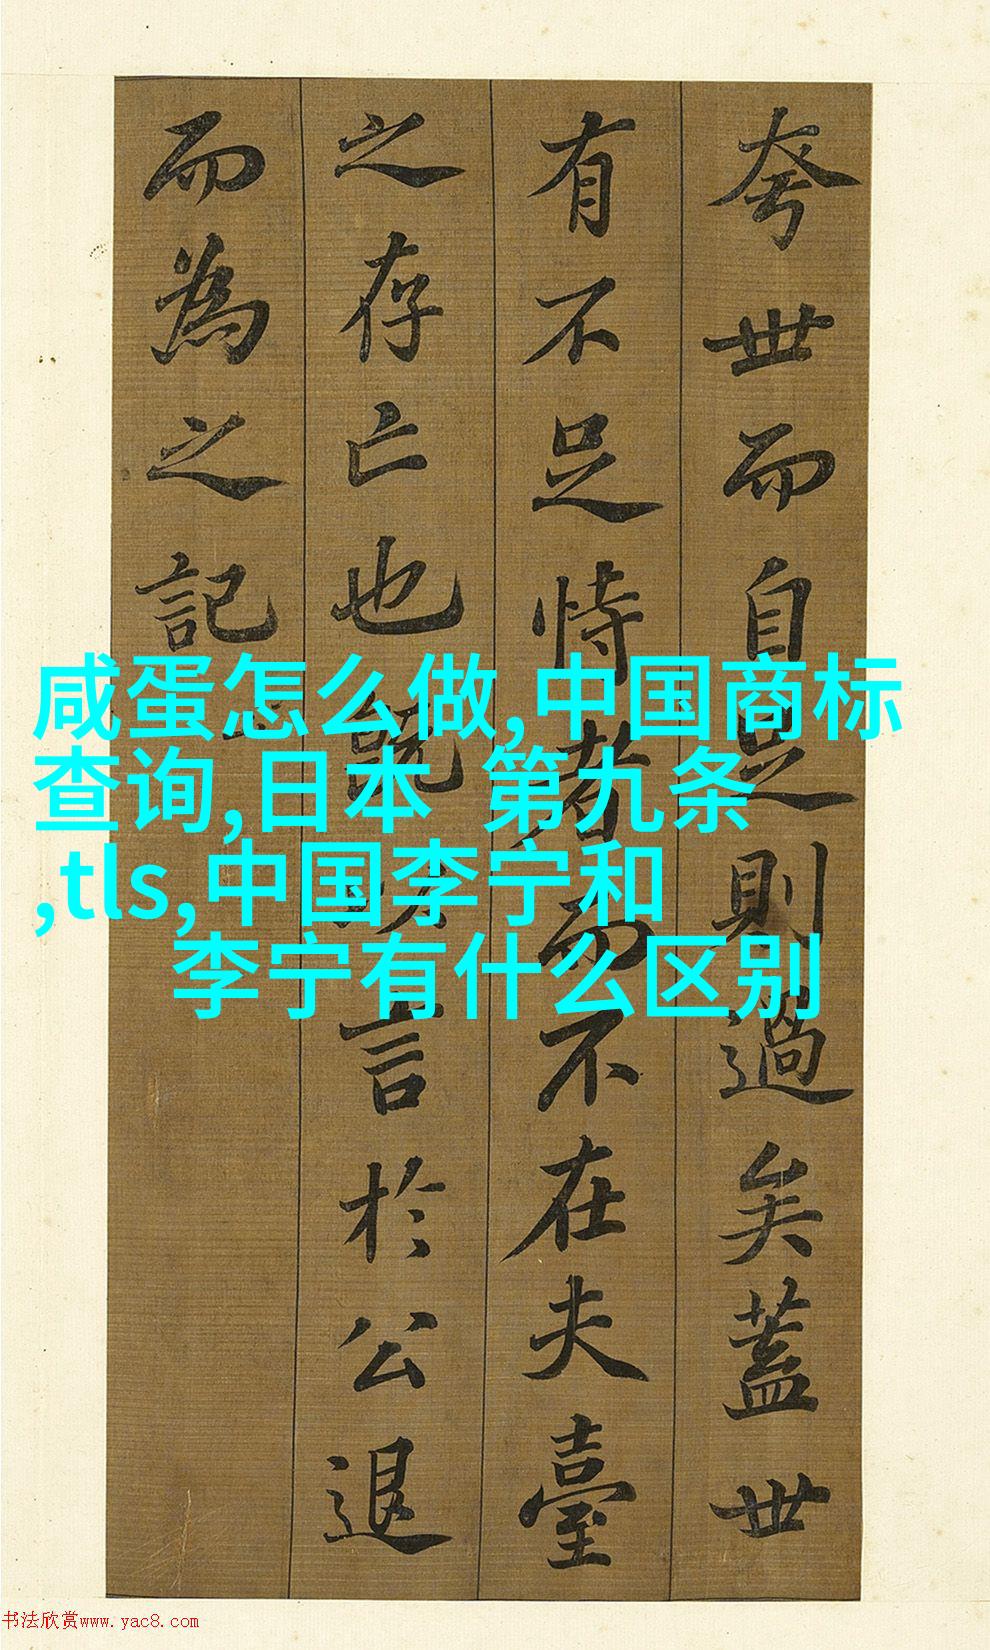 夸世而自足則過矣蓋世
有不足恃者而不在夫臺
之存亡也既以言於公退
而為之記
咸蛋怎么做,中国商标
查询,日本 第九条
,tls,中国李宁和
李宁有什么区别
书法欣赏www.yac8.com